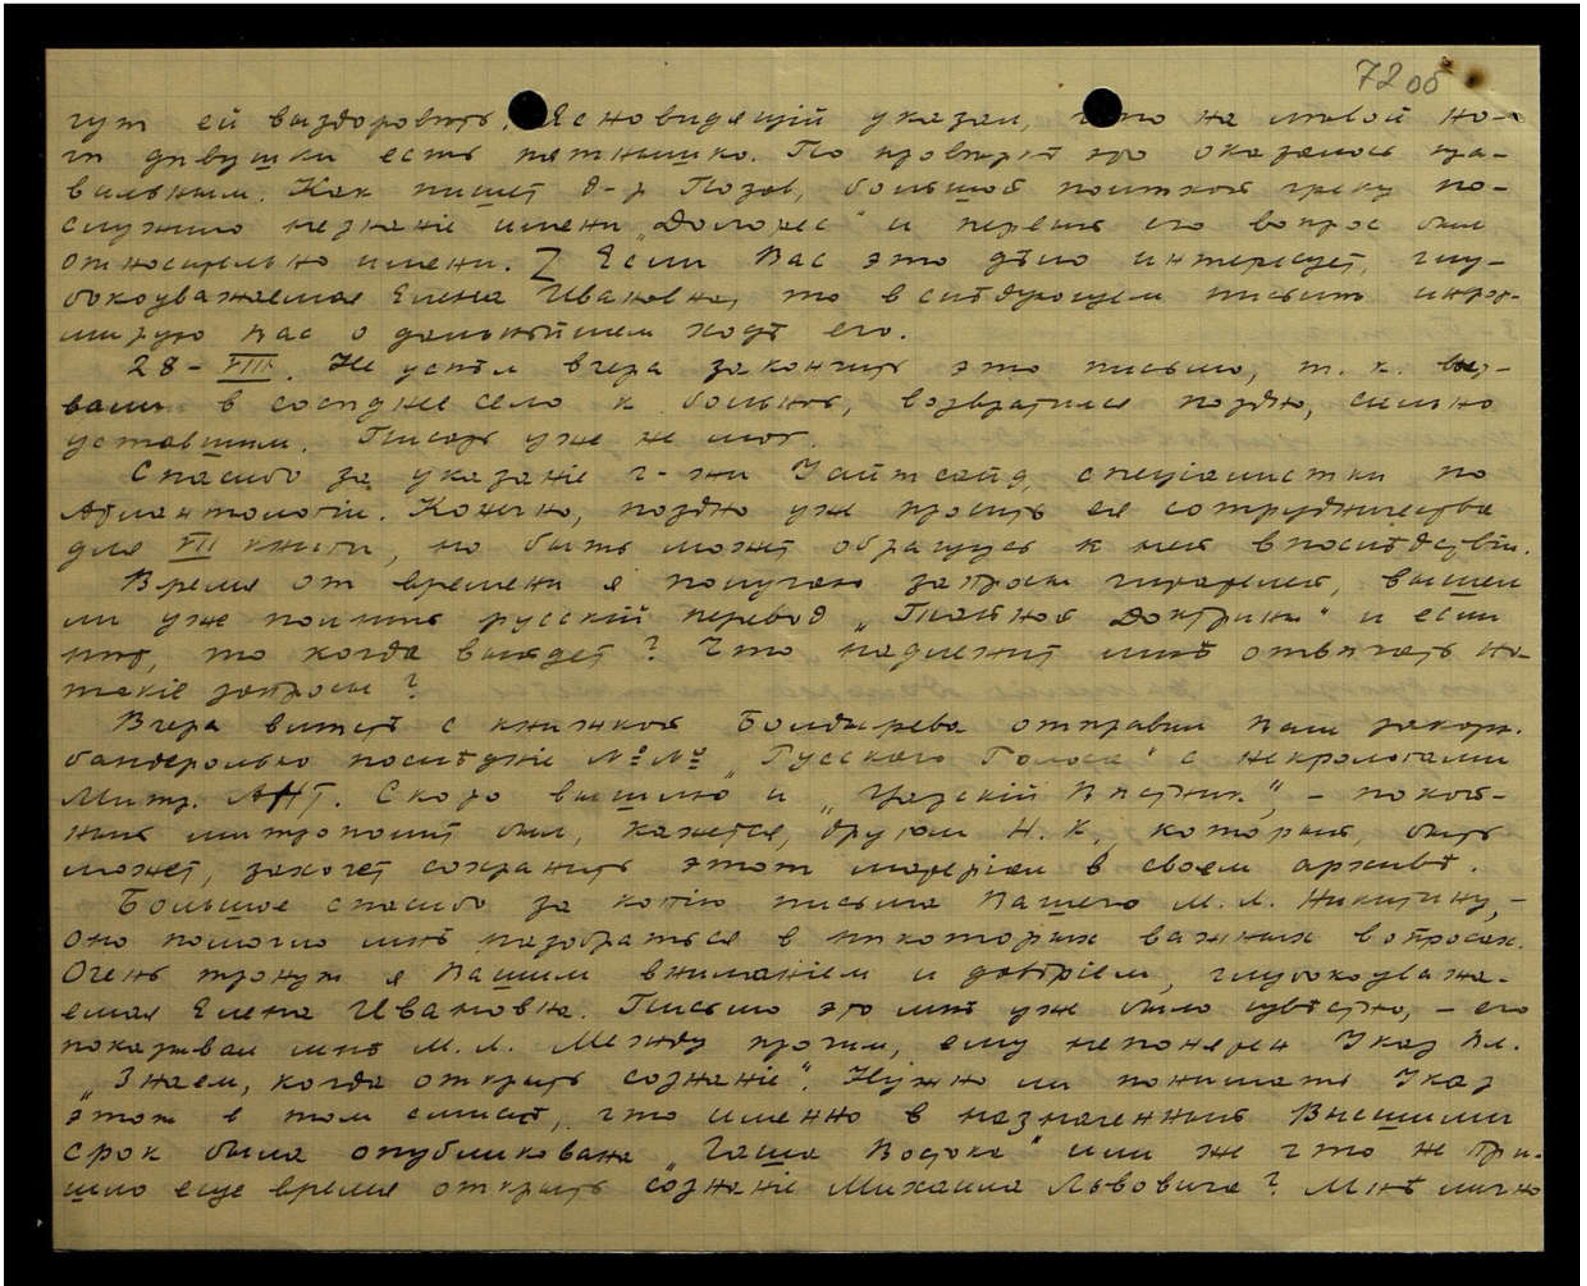 72 об
гут ей выздоровѣть. Ясновидящій указал, что на лѣвой но-
гѣ дѣвушки есть пятнышко. По провѣркѣ это оказалось пра-
вильным. Как пишет д-р Позов, большой помѣхой греку по-
служило незнаніе имени „Долорес" и первый его вопрос был
относительно имени. Если Вас это дѣло интересует, глу-
бокоуважаемая Елена Ивановна, то в слѣдующем письмѣ инфор-
мирую Вас о дальнѣйшем ходѣ его.
28-VIII. Не успѣл вчера закончить это письмо, т. к. выз-
вали в сосѣднее село к больной, возвратился поздно, сильно
уставшим. Писать уже не мог.
Спасибо за указаніе г-жи Уайтсайд, спеціалистки по
Атлантологіи. Конечно, поздно уже просить ея сотрудничества
для VII книги, но быть может обращусь к ней впослѣдствіи.
Время от времени я получаю запросы читателей, вышел
ли уже полный русскій перевод „Тайной Доктрины" и если
нѣт, то когда выйдет? Что надлежит мнѣ отвѣчать на
такіе запросы?
Вчера вмѣстѣ с книжкой Болдырева отправил Вам заказн.
бандеролью послѣдніе №№ „Русскаго Голоса" с некрологами
Митр. АНТ. Скоро вышлю и „Царскій Вѣстник", - покой-
ный митрополит был, кажется, другом Н. К., который, быть
может, захочет сохранить этот матеріал в своем архивѣ.
Большое спасибо за копію письма Вашего М. Л. Никитину, -
оно помогло мнѣ разобраться в нѣкоторых важных вопросах.
Очень тронут я Вашим вниманіем и довѣріем, глубокоуважа-
емая Елена Ивановна. Письмо это мнѣ уже было извѣстно, - его
показывал мнѣ М. Л. Между прочим, ему непонятен Указ Вл.
„Знаем, когда открыть сознаніе". Нужно ли понимать Указ
этот в том смыслѣ, что именно в назначенный Высшими
срок была опубликована „Чаша Востока" или же что не при-
шло еще время открыть сознаніе Михаила Львовича? Мнѣ лично